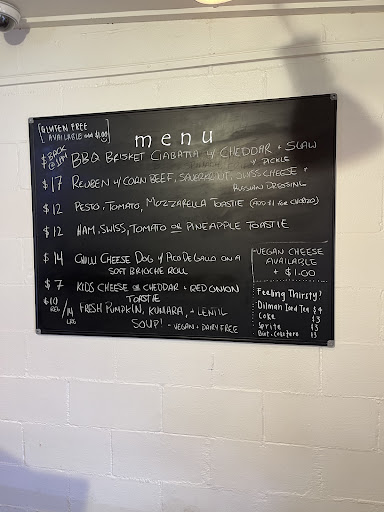 [GLUTEN FREE
AVAILABLE add $1.00]
menu
$ BACK @ 11AM BBQ BRISKET CIABATTA w/ CHEDDAR + SLAW
+ PICKLE
$17 REUBEN w/ CORN BEEF, SAUERKRAUT, SWISS CHEESE +
RUSSIAN DRESSING
$12 PESTO, TOMATO, MOZZARELLA TOASTIE (ADD $1 for CHORIZO)
$12 HAM, SWISS, TOMATO OR PINEAPPLE TOASTIE
$14 CHILLI CHEESE DOG w/ PICO DE GALLO ON A
SOFT BRIOCHE ROLL
$7 KIDS CHEESE OR CHEDDAR + RED ONION
TOASTIE
$10 REG / 14 LRG FRESH PUMPKIN, KUMARA, + LENTIL
SOUP! - VEGAN + DAIRY FREE
VEGAN CHEESE
AVAILABLE
+ $1.00
Feeling Thirsty?
Dilmah Iced Tea $4
Coke $3
Sprite $3
Diet. Coke/Zero $3